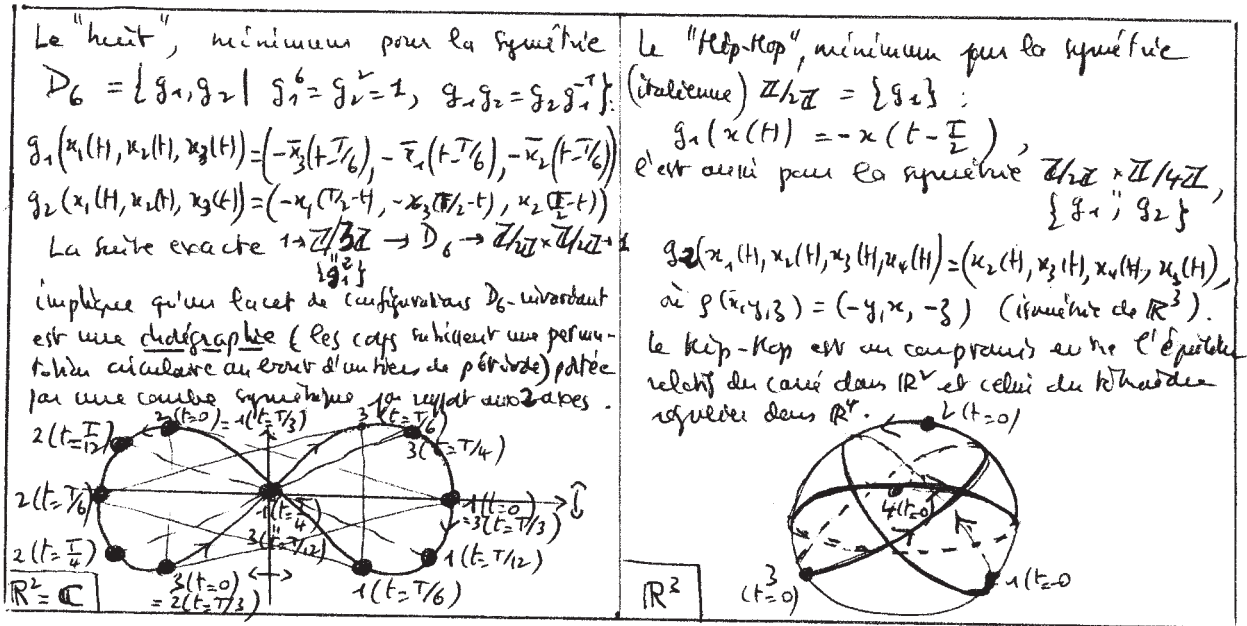 Le "huit", minimum pour la symétrie
D₆ = {g₁, g₂ | g₁⁶ = g₂² = 1, g₁g₂ = g₂g₁⁻¹}:
g₁(x₁(t), x₂(t), x₃(t)) = (-x̄₃(t-T/6), -x̄₁(t-T/6), -x̄₂(t-T/6))
g₂(x₁(t), x₂(t), x₃(t)) = (-x₁(T/2-t), -x₃(T/2-t), x₂(T/2-t))
La suite exacte 1→ℤ/3ℤ → D₆ → ℤ/2ℤ×ℤ/2ℤ→1
"{g₁²}
implique qu'un lacet de configurations D₆-invariant
est une chorégraphie (les corps subissent une permu-
tation circulaire au bout d'un tiers de période) portée
par une courbe symétrique par rapport aux 2 axes.
2(t=0) = 1(t=T/3)
3(t=T/6)
2(t=T/12)
3(t=T/4)
2(t=T/6)
1(t=T/4)
"
3(t=T/12)
1(t=0)
=3(t=T/3)
2(t=T/4)
1(t=T/12)
3(t=0)
=2(t=T/3)
1(t=T/6)
ℝ²=ℂ
Le "Hip-Hop", minimum pour la symétrie
(italienne) ℤ/2ℤ = {g₁} :
g₁(x(t) = -x(t-T/2),
l'est aussi pour la symétrie ℤ/2ℤ × ℤ/4ℤ,
{g₁ ", g₂}
g₂(x₁(t), x₂(t), x₃(t), x₄(t) = (x₂(t), x₃(t), x₄(t), x₁(t)),
où ρ(x,y,z) = (-y, x, -z) (isométrie de ℝ³).
Le Hip-Hop est un compromis entre l'équilibre
relatif du carré dans ℝ² et celui du tétraèdre
régulier dans ℝ⁴.
2(t=0)
4(t=0)
3
(t=0)
1(t=0
ℝ³